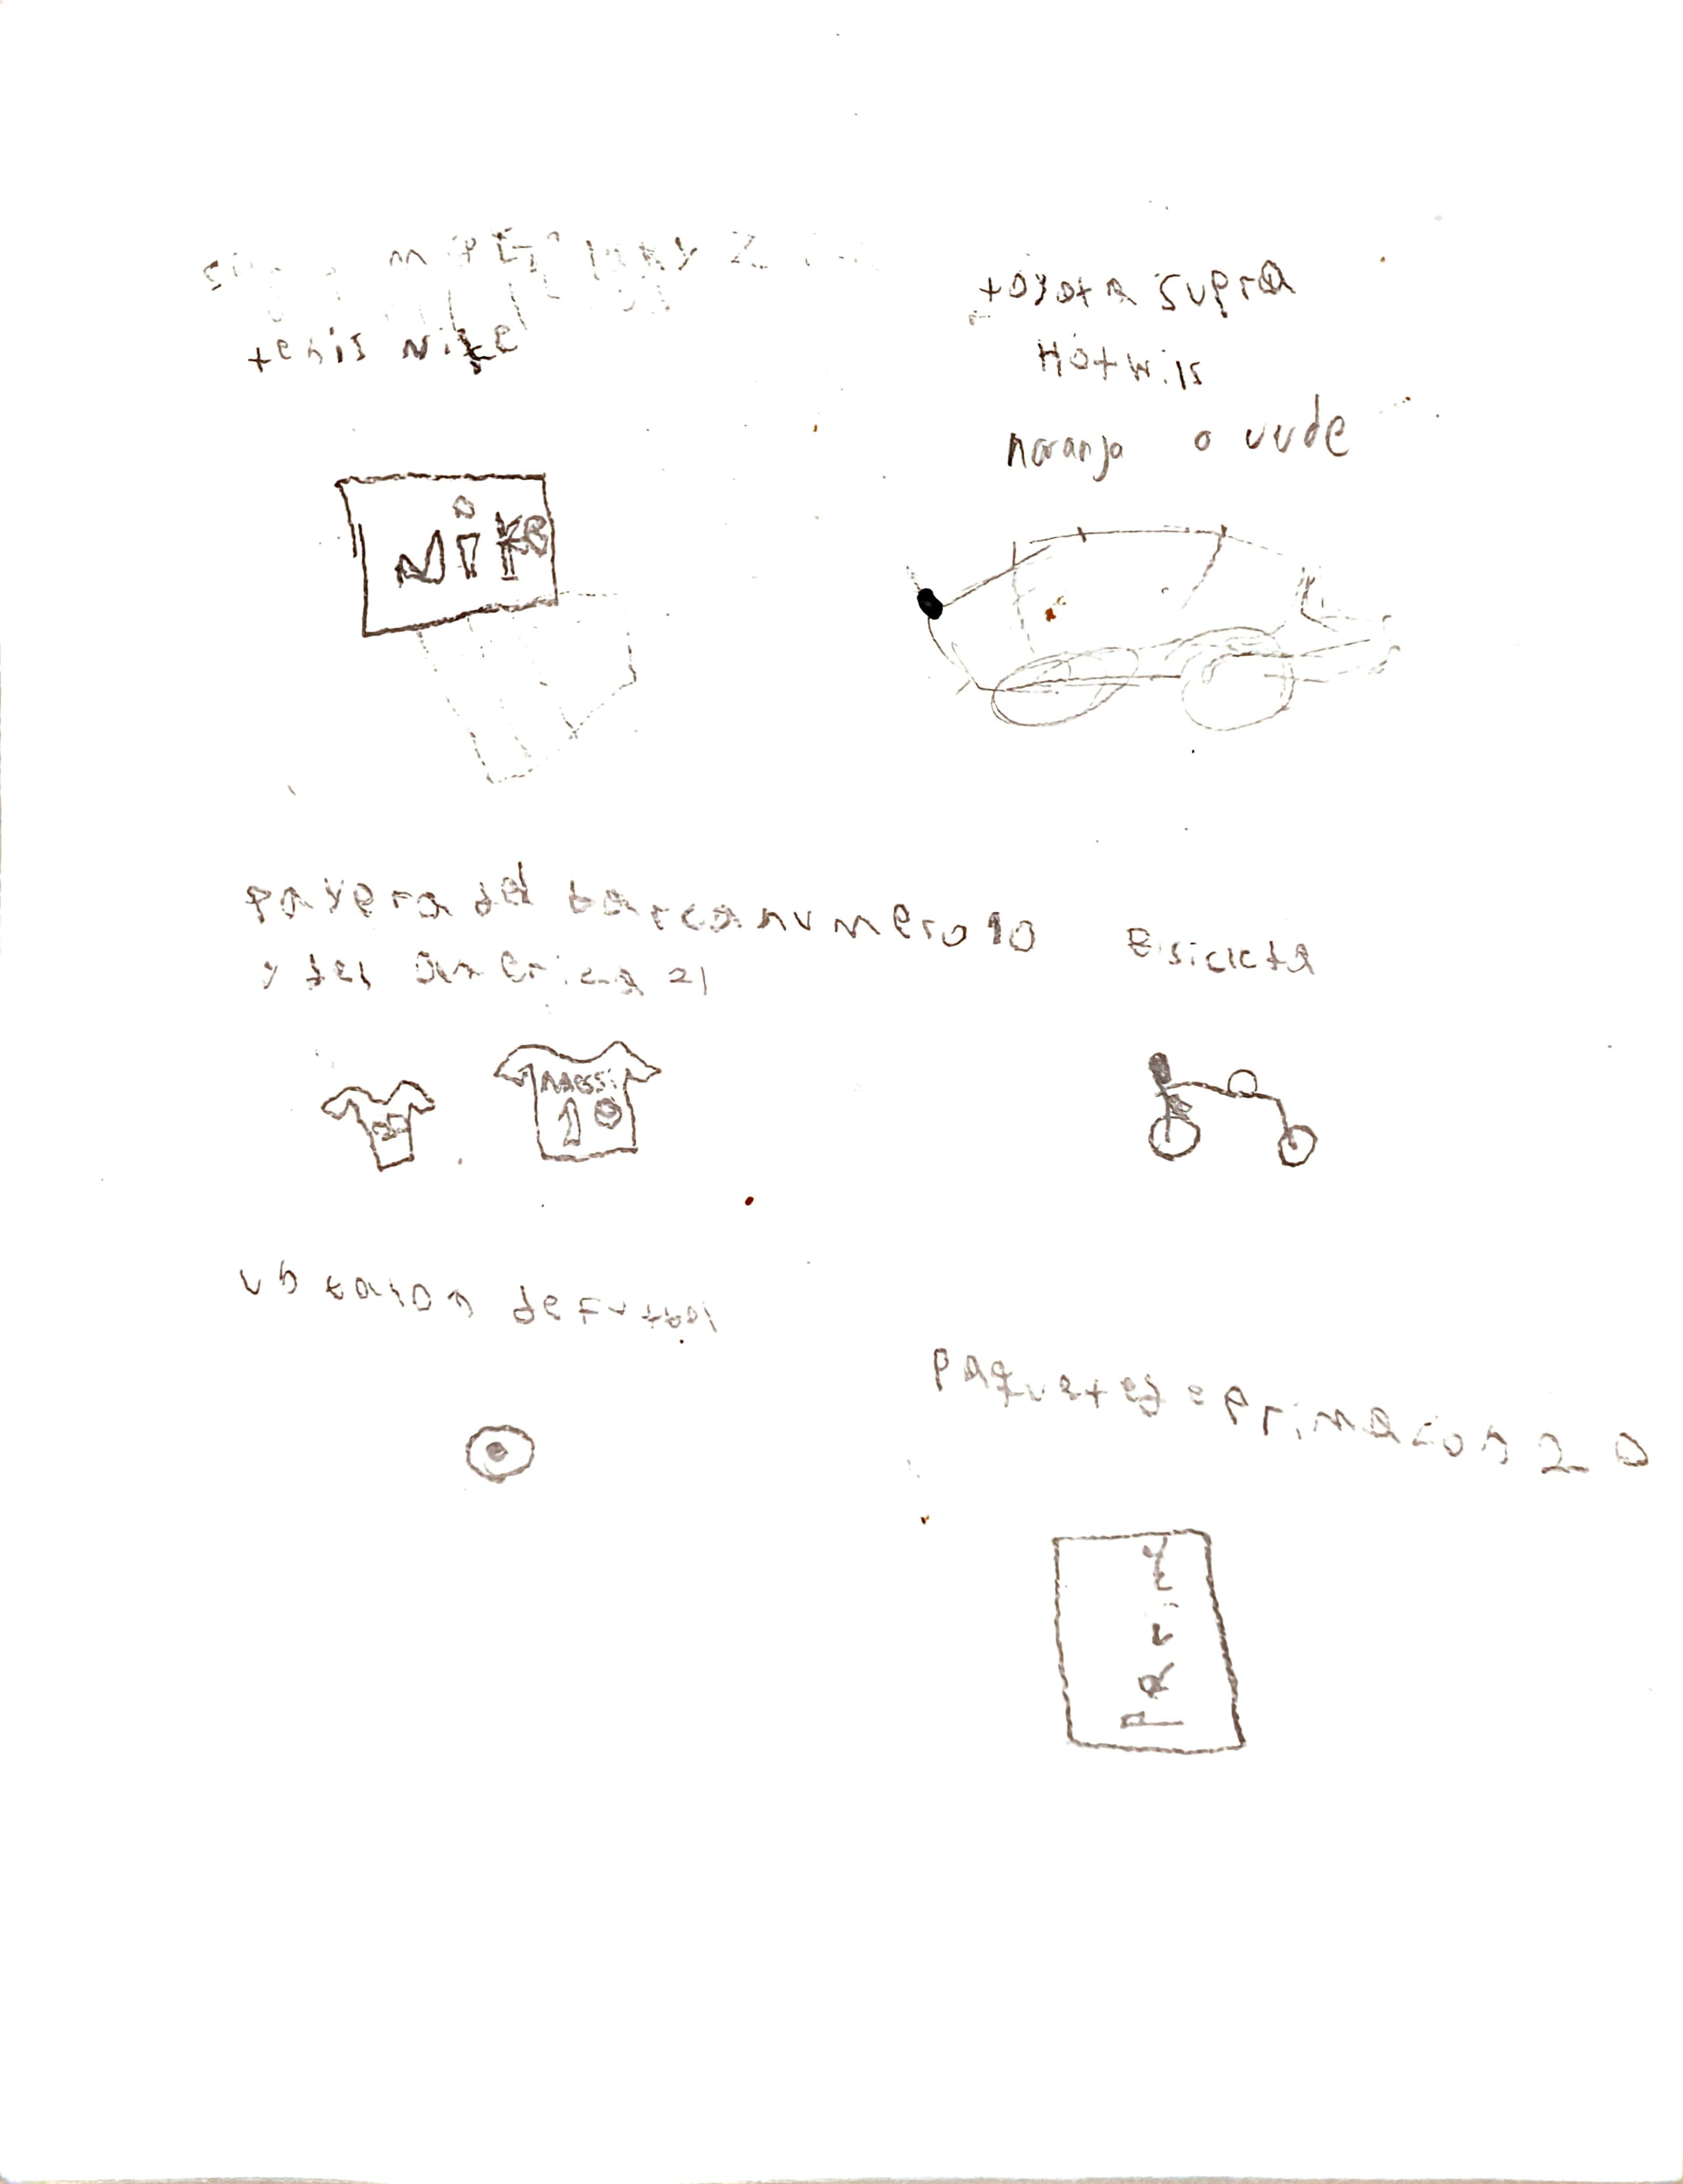 tenis Nike
NiKe
toyota supra
Hotwils
naranja o vude
payera del barca numero 10
y del america 21
MESSi
10
Bisicleta
un balon de futbol
paquete de prima con 20